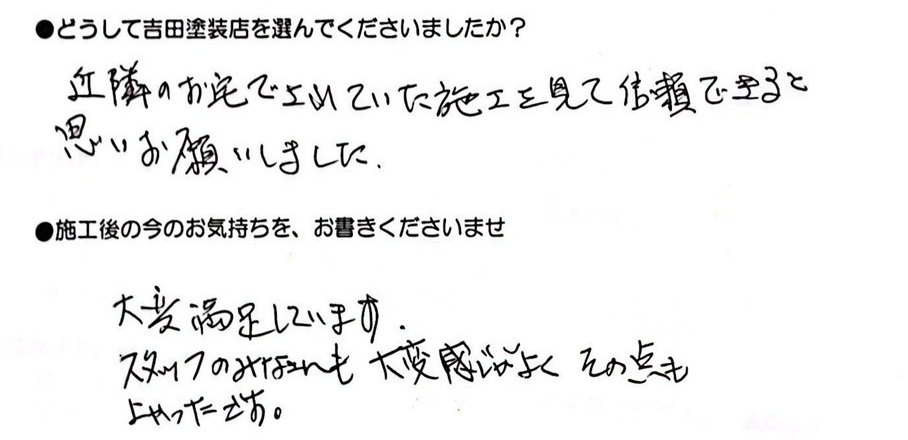 ●どうして吉田塗装店を選んでくださいましたか？
近隣のお宅でされていた施工を見て信頼できると
思いお願いしました.
●施工後の今のお気持ちを、お書きくださいませ
大変満足しています.
スタッフのみなさんも大変感じがよくその点も
よかったです。